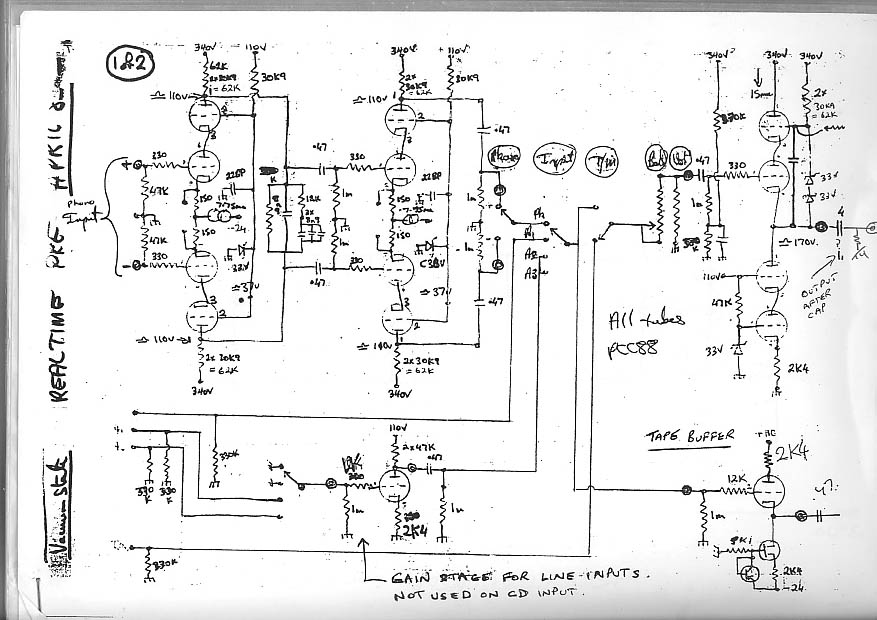 1 of 2
340V
110V
62K
2x30K9
= 62K
30K9
≏ 110V
330
47K
47K
330
Phono
Input
150
150
228P
-24
33V
≏ 37V
≏ 110V
2x 30K9
= 62K
340V
REALTIME PRE
APRIL
Vacuum State
340V
+110V
2x
30K9
= 62K
30K9
≏ 110V
.47
330
12K
1m
1m
330
.47
150
150
228P
C33V
≏ 37V
≏ 110V
2x 30K9
= 62K
340V
.47
1m
1m
.47
Phono
Input
T/M
Ph
A2
A3
Bal
Vol
.47
330
1m
340V
340V
340V
15ma
2x
30K9
= 62K
33V
33V
≏ 170V
4
OUTPUT
AFTER
CAP
110V
47K
33V
2K4
All tubes
PCC88
330K
330
K
330
K
330K
110V
2x47K
.47
1m
2K4
1m
GAIN STAGE FOR LINE-INPUTS.
NOT USED ON CD INPUT.
TAPE BUFFER
2K4
12K
1m
2K4
-24